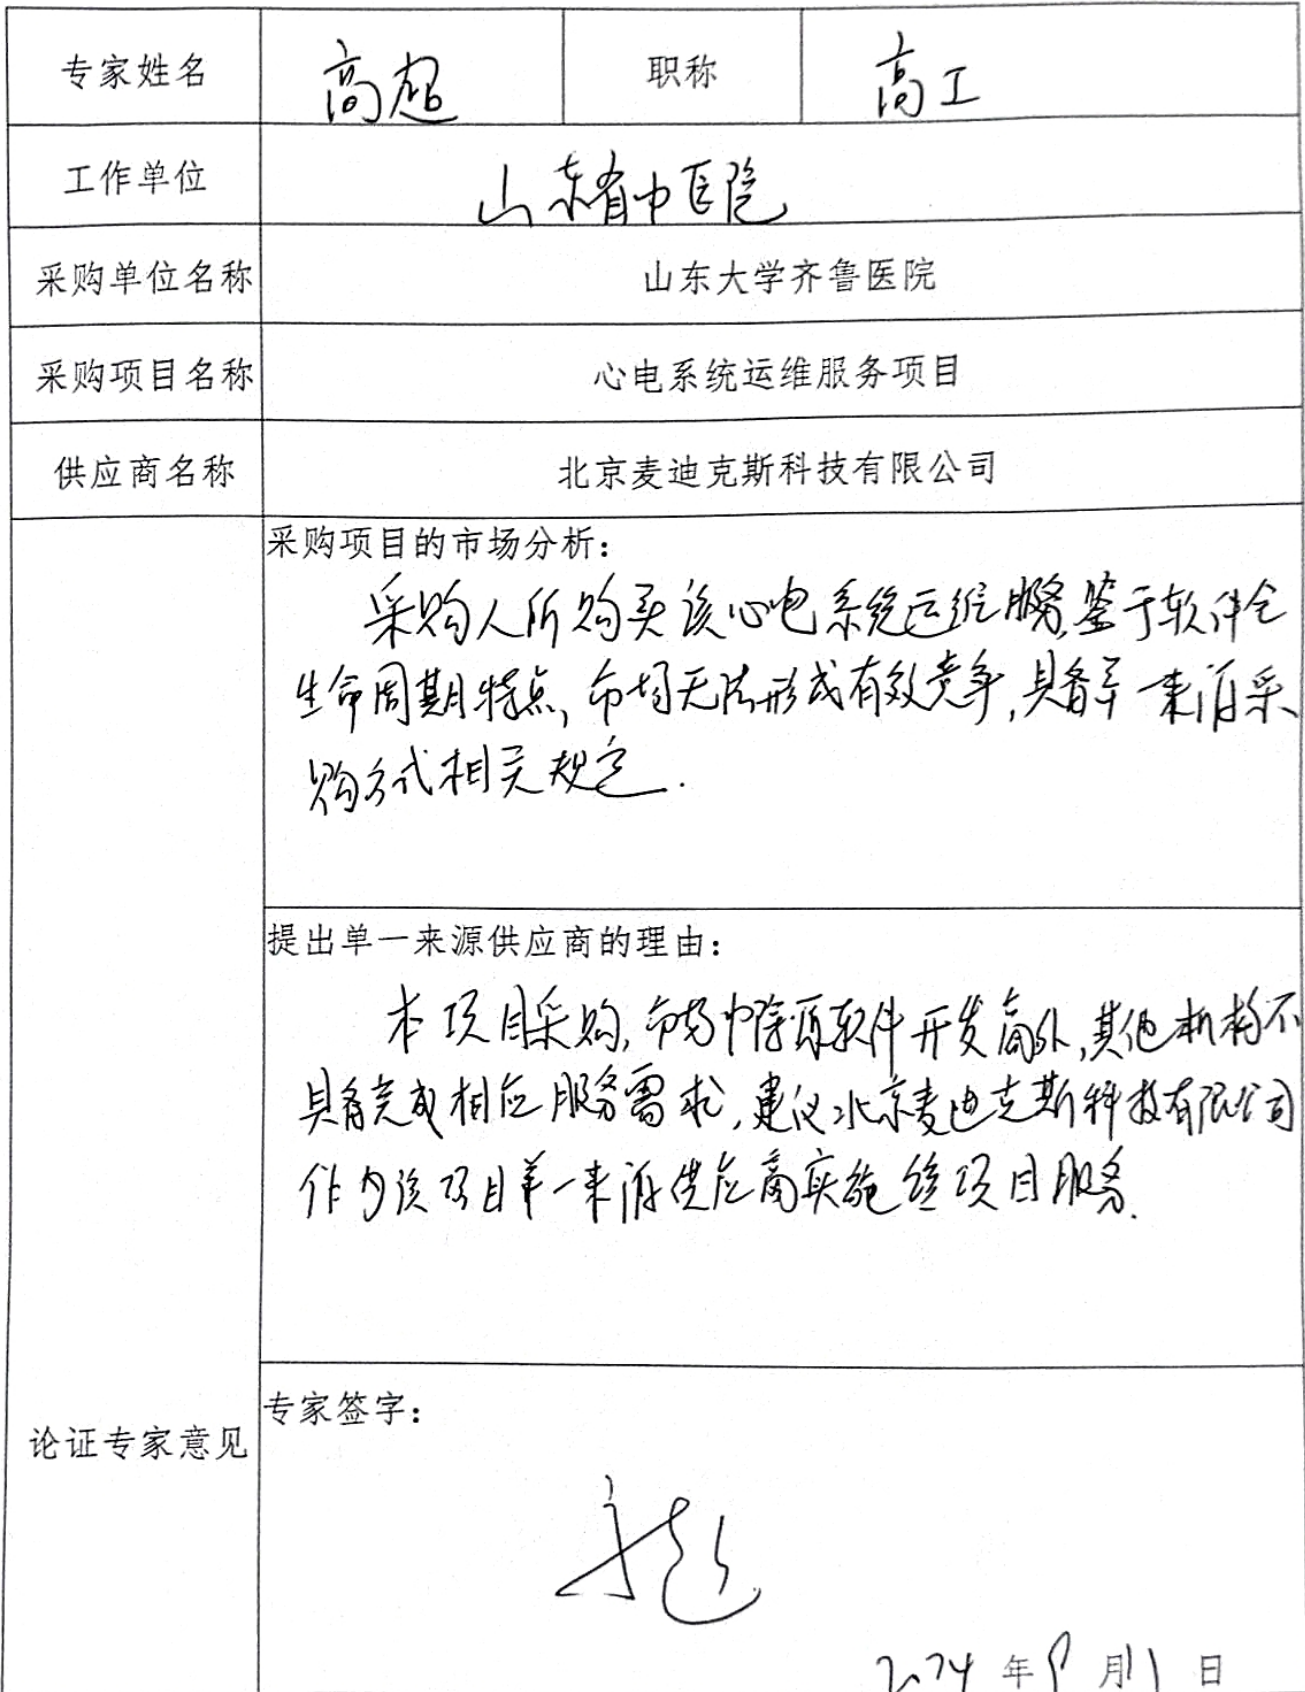 专家姓名 高超 职称 高工
工作单位 山东省中医院
采购单位名称 山东大学齐鲁医院
采购项目名称 心电系统运维服务项目
供应商名称 北京麦迪克斯科技有限公司
采购项目的市场分析：
采购人所购买该心电系统运维服务,鉴于软件全
生命周期特点,市场无法形成有效竞争,具备单一来源采
购方式相关规定.
提出单一来源供应商的理由：
本项目采购,市场中除原软件开发商外,其他机构不
具备完成相应服务需求,建议北京麦迪克斯科技有限公司
作为该项目单一来源供应商实施该项目服务.
论证专家意见
专家签字：
高超
2024年8月11日